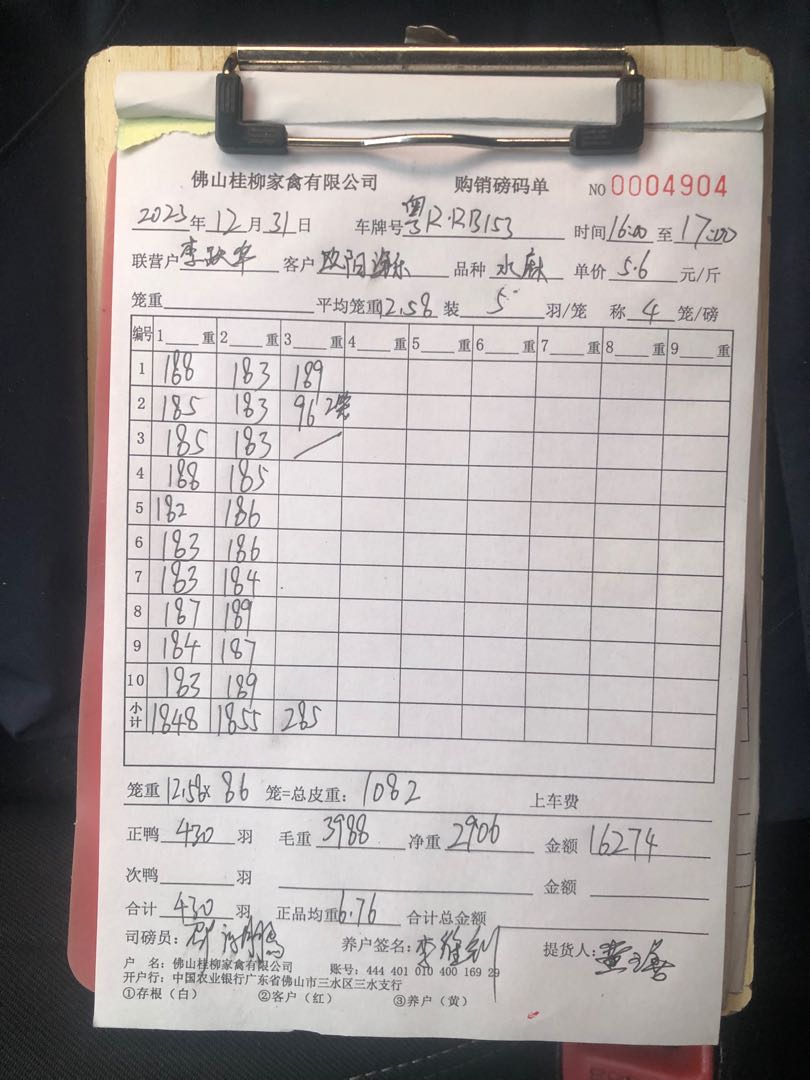 佛山桂柳家禽有限公司 购销磅码单 NO 0004904
2023年12月31日 车牌号粤R·RB153 时间16:00至17:00
联营户李跃华 客户欧阳海乐 品种水麻 单价5.6元/斤
笼重 平均笼重12.58 装5羽/笼 称4笼/磅
编号 1 重 2 重 3 重 4 重 5 重 6 重 7 重 8 重 9 重
1 188 183 189
2 185 183 96 2笼
3 185 183
4 188 185
5 182 186
6 183 186
7 183 184
8 187 189
9 184 187
10 183 189
小计 1848 1855 285
笼重12.58×86笼=总皮重：1082 上车费
正鸭430羽 毛重3988 净重2906 金额16274
次鸭 羽 金额
合计430羽 正品均重6.76 合计总金额
司磅员： 养户签名： 提货人：
户 名：佛山桂柳家禽有限公司 账号：444 401 010 400 169 29
开户行：中国农业银行广东省佛山市三水区三水支行
①存根（白） ②客户（红） ③养户（黄）